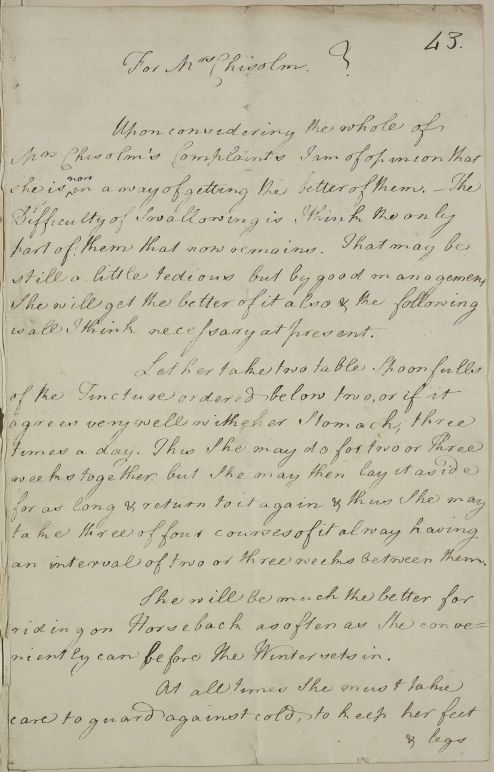 43.
For Mrs Chisolm.
Upon considering the whole of
Mrs Chisolm's Complaints I am of opinion that
she is now in a way of getting the better of them. – The
Difficulty of Swallowing is I think the only
part of them that now remains. That may be
still a little tedious but by good management
She will get the better of it also & the following
is all I think necessary at present.
Let her take two table Spoonfulls
of the Tincture ordered below two, or if it
agrees very well with her Stomach, three
times a day. This She may do for two or Three
weeks together but She may then lay it aside
for as long & return to it again & thus She may
take three of four courses of it alway having
an interval of two or three weeks between them.
She will be much the better for
riding on Horseback as often as She conve=
niently can before the Winter sets in.
At all times She must take
care to guard against cold, to keep her feet
& legs